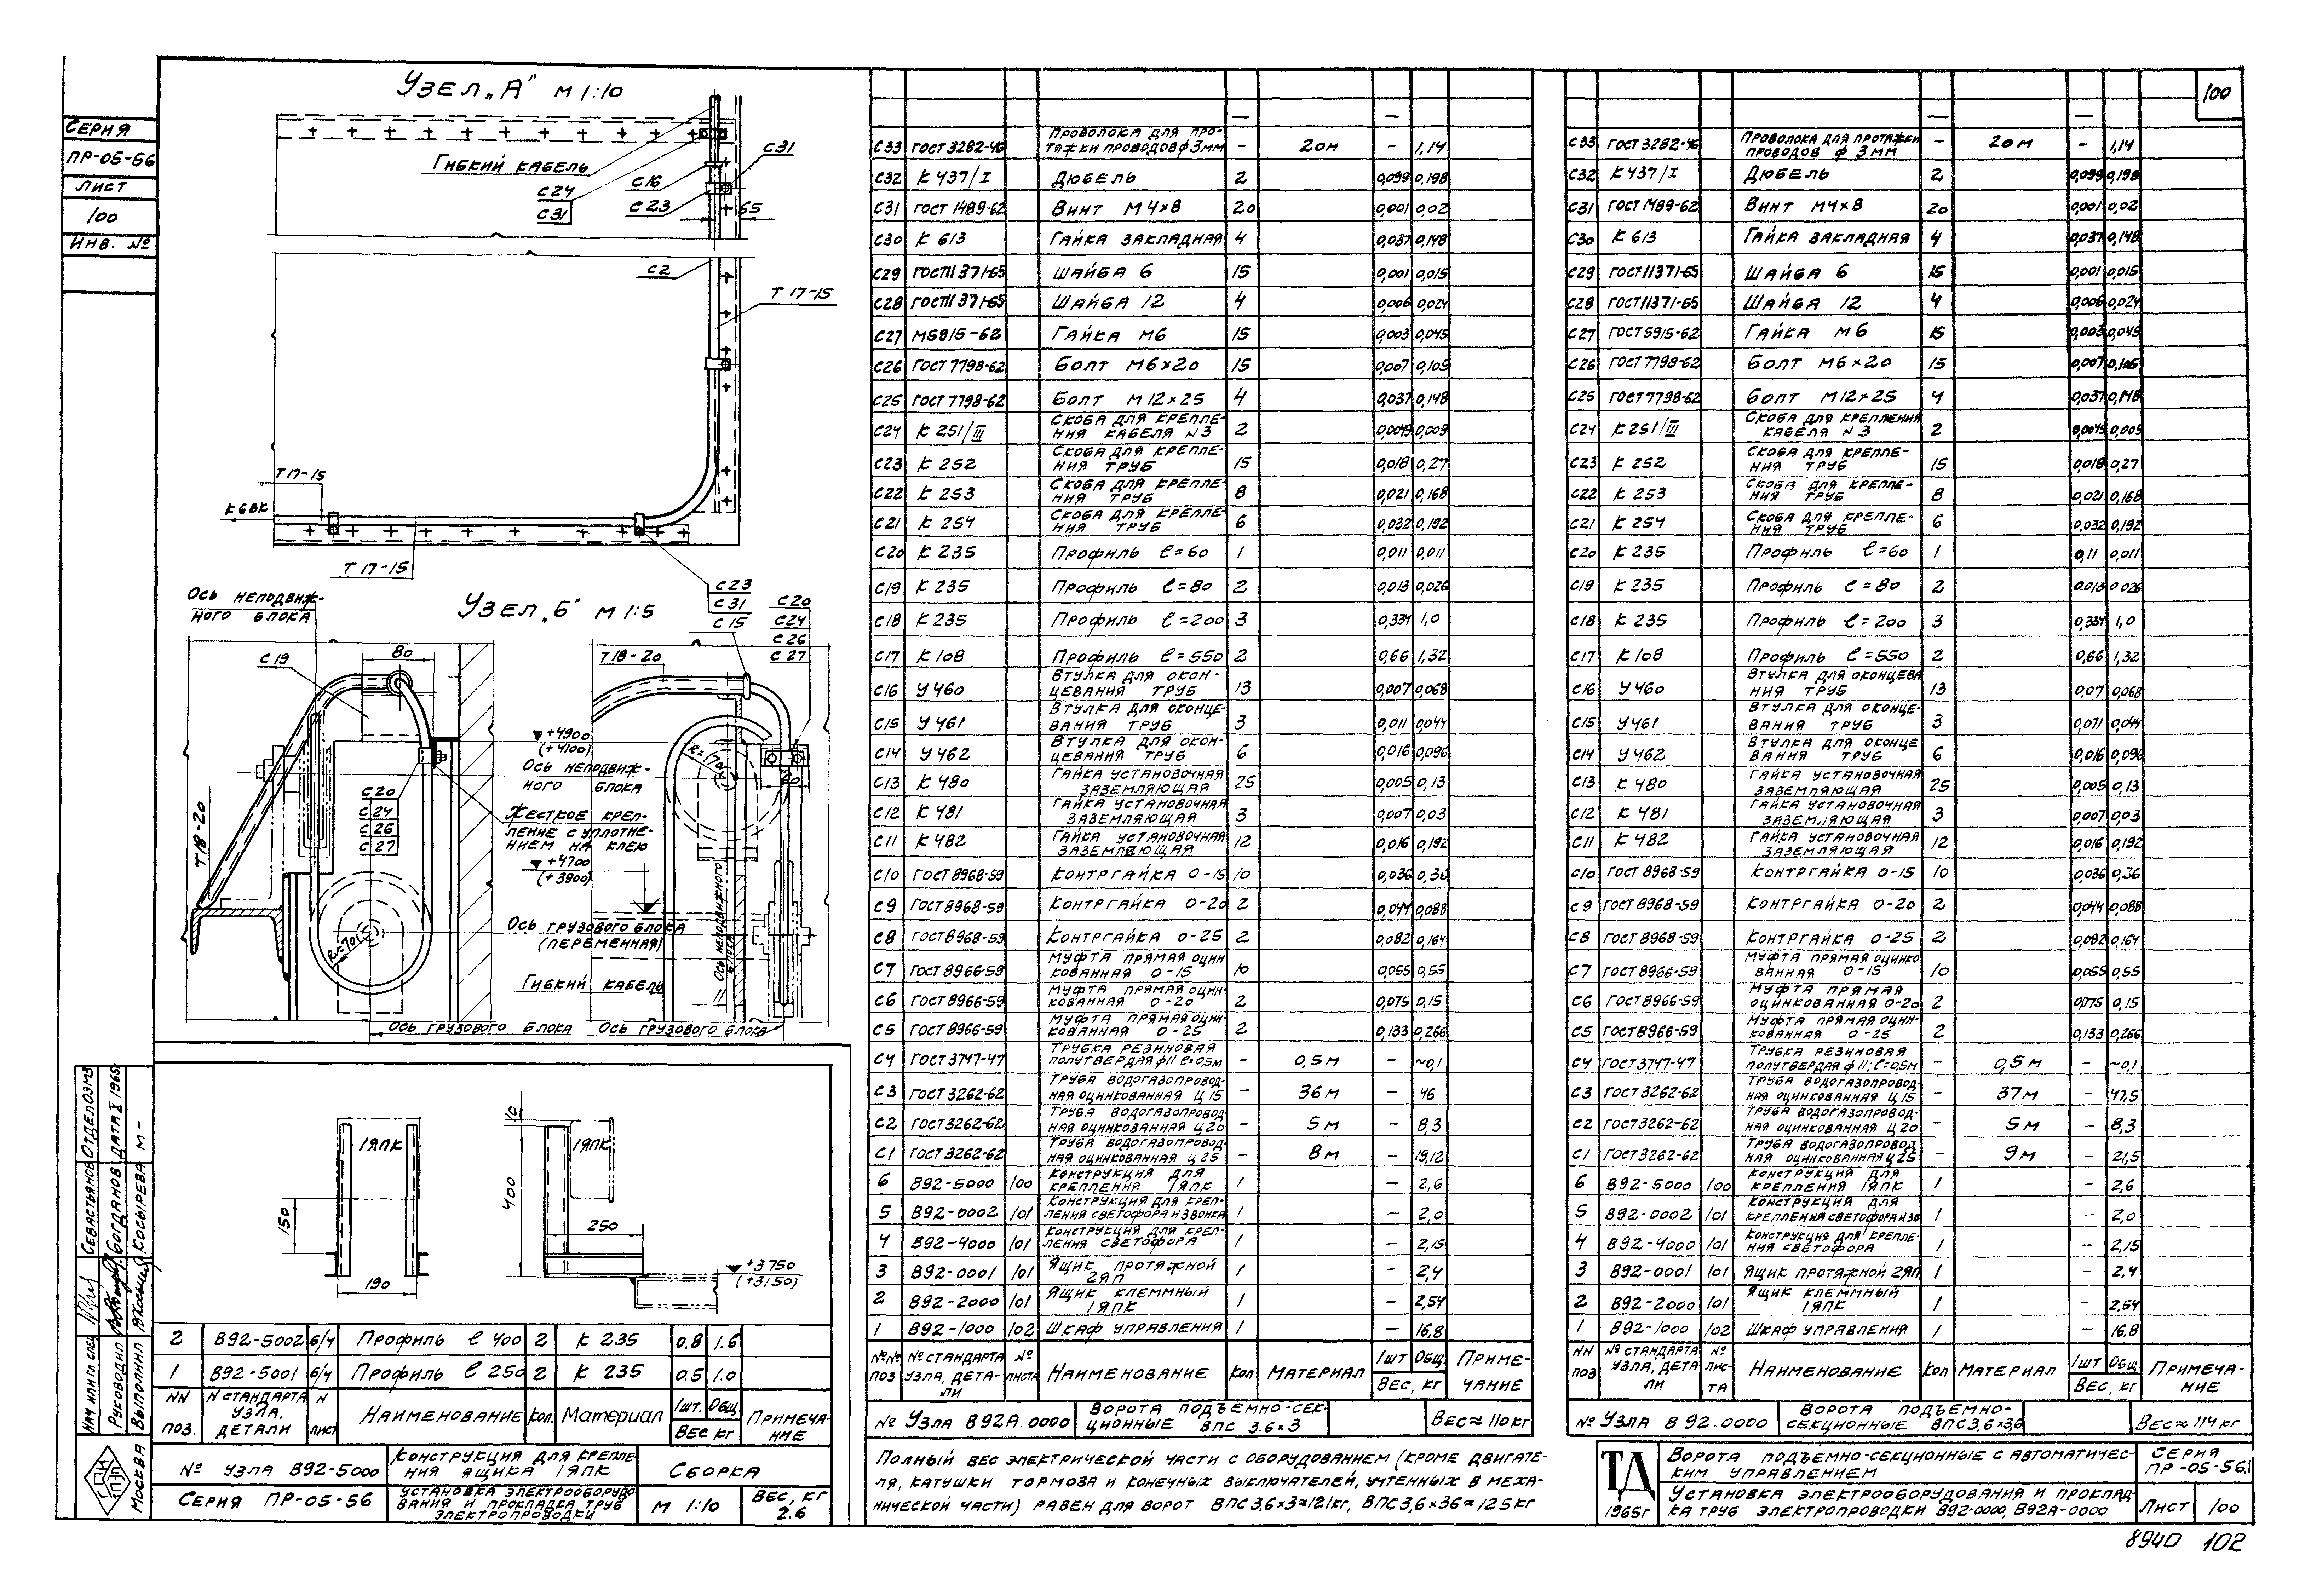 100
СЕРИЯ
ПР-05-56
ЛИСТ
100
ИНВ. №
УЗЕЛ „А" М 1:10
ГИБКИЙ КАБЕЛЬ
С24
С31
С16
С23
С31
65
С2
Т 17-15
Т 17-15
К 6ВК
Т 17-15
С23
С31
С15
УЗЕЛ „Б" М 1:5
ОСЬ НЕПОДВИЖ-
НОГО БЛОКА
С19
80
Т18-20
С20
С24
С26
С27
Т18-20
С20
С24
С26
С27
+4900
(+4100)
ОСЬ НЕПОДВИЖ-
НОГО БЛОКА
ЖЕСТКОЕ КРЕП-
ЛЕНИЕ С УПЛОТНЕ-
НИЕМ НА КЛЕЮ
+4700
(+3900)
ОСЬ ГРУЗОВОГО БЛОКА
(ПЕРЕМЕННАЯ)
ГИБКИЙ КАБЕЛЬ
ОСЬ НЕПОДВИЖНОГО
БЛОКА
60
ОСЬ ГРУЗОВОГО БЛОКА
ОСЬ ГРУЗОВОГО БЛОКА
1ЯПК
150
190
10
400
1ЯПК
250
+3750
(+3150)
2 В92-5002 б/ч ПРОФИЛЬ ℓ 400 2 К 235 0.8 1.6
1 В92-5001 б/ч ПРОФИЛЬ ℓ 250 2 К 235 0.5 1.0
NN ПОЗ. N СТАНДАРТА УЗЛА, ДЕТАЛИ N ЛИСТ НАИМЕНОВАНИЕ КОЛ. МАТЕРИАЛ 1ШТ. ОБЩ. ВЕС КГ ПРИМЕЧА-НИЕ
№ УЗЛА В92-5000
КОНСТРУКЦИЯ ДЛЯ КРЕПЛЕ-
НИЯ ЯЩИКА 1ЯПК
СБОРКА
СЕРИЯ ПР-05-56
УСТАНОВКА ЭЛЕКТРООБОРУДО
ВАНИЯ И ПРОКЛАДКА ТРУБ
ЭЛЕКТРОПРОВОДКИ
М 1:10
ВЕС, КГ
2.6
НАЧ ИЛИ ГЛ СПЕЦ СЕВАСТЬЯНОВ ОТДЕЛ ОЭМЗ
РУКОВОДИЛ БОГДАНОВ ДАТА X 1965г
ВЫПОЛНИЛ КОСЫРЕВА М -
МОСКВА
С33 ГОСТ 3282-46 ПРОВОЛОКА ДЛЯ ПРО-ТЯЖКИ ПРОВОДОВ ϕ 3ММ - 20М - 1,14
С32 К 437/I ДЮБЕЛЬ 2 0,099 0,198
С31 ГОСТ 1489-62 ВИНТ М4×8 20 0,001 0,02
С30 К 613 ГАЙКА ЗАКЛАДНАЯ 4 0,037 0,148
С29 ГОСТ11371-65 ШАЙБА 6 15 0,001 0,015
С28 ГОСТ11371-65 ШАЙБА 12 4 0,006 0,024
С27 М5915-62 ГАЙКА М6 15 0,003 0,045
С26 ГОСТ 7798-62 БОЛТ М6×20 15 0,007 0,105
С25 ГОСТ 7798-62 БОЛТ М12×25 4 0,037 0,148
С24 К 251/III СКОБА ДЛЯ КРЕПЛЕ-НИЯ КАБЕЛЯ N 3 2 0,0045 0,009
С23 К 252 СКОБА ДЛЯ КРЕПЛЕ-НИЯ ТРУБ 15 0,018 0,27
С22 К 253 СКОБА ДЛЯ КРЕПЛЕ-НИЯ ТРУБ 8 0,021 0,168
С21 К 254 СКОБА ДЛЯ КРЕПЛЕ-НИЯ ТРУБ 6 0,032 0,192
С20 К 235 ПРОФИЛЬ ℓ=60 1 0,011 0,011
С19 К 235 ПРОФИЛЬ ℓ=80 2 0,013 0,026
С18 К 235 ПРОФИЛЬ ℓ=200 3 0,334 1,0
С17 К 108 ПРОФИЛЬ ℓ=550 2 0,66 1,32
С16 У 460 ВТУЛКА ДЛЯ ОКОН-ЦЕВАНИЯ ТРУБ 13 0,007 0,068
С15 У 461 ВТУЛКА ДЛЯ ОКОНЦЕ-ВАНИЯ ТРУБ 3 0,011 0,044
С14 У 462 ВТУЛКА ДЛЯ ОКОН-ЦЕВАНИЯ ТРУБ 6 0,016 0,096
С13 К 480 ГАЙКА УСТАНОВОЧНАЯ ЗАЗЕМЛЯЮЩАЯ 25 0,005 0,13
С12 К 481 ГАЙКА УСТАНОВОЧНАЯ ЗАЗЕМЛЯЮЩАЯ 3 0,007 0,03
С11 К 482 ГАЙКА УСТАНОВОЧНАЯ ЗАЗЕМЛЯЮЩАЯ 12 0,016 0,192
С10 ГОСТ 8968-59 КОНТРГАЙКА О-15 10 0,036 0,36
С9 ГОСТ 8968-59 КОНТРГАЙКА О-20 2 0,044 0,088
С8 ГОСТ 8968-59 КОНТРГАЙКА О-25 2 0,082 0,164
С7 ГОСТ 8966-59 МУФТА ПРЯМАЯ ОЦИН КОВАННАЯ О-15 10 0,055 0,55
С6 ГОСТ 8966-59 МУФТА ПРЯМАЯ ОЦИН-КОВАННАЯ О-20 2 0,075 0,15
С5 ГОСТ 8966-59 МУФТА ПРЯМАЯ ОЦИН-КОВАННАЯ О-25 2 0,133 0,266
С4 ГОСТ3747-47 ТРУБКА РЕЗИНОВАЯ ПОЛУТВЕРДАЯ ϕ 11 ℓ=0,5М - 0,5М - ~0,1
С3 ГОСТ 3262-62 ТРУБА ВОДОГАЗОПРОВОД-НАЯ ОЦИНКОВАННАЯ Ц 15 - 36М - 46
С2 ГОСТ3262-62 ТРУБА ВОДОГАЗОПРОВОД НАЯ ОЦИНКОВАННАЯ Ц 20 - 5М - 8,3
С1 ГОСТ 3262-62 ТРУБА ВОДОГАЗОПРОВОД-НАЯ ОЦИНКОВАННАЯ Ц 25 - 8М - 19,12
6 В92-5000 100 КОНСТРУКЦИЯ ДЛЯ КРЕПЛЕНИЯ 1ЯПК 1 - 2,6
5 В92-0002 101 КОНСТРУКЦИЯ ДЛЯ КРЕП-ЛЕНИЯ СВЕТОФОРА И ЗВОНКА 1 - 2,0
4 В92-4000 101 КОНСТРУКЦИЯ ДЛЯ КРЕП-ЛЕНИЯ СВЕТОФОРА 1 - 2,15
3 В92-0001 101 ЯЩИК ПРОТЯЖНОЙ 2ЯП 1 - 2,4
2 В92-2000 101 ЯЩИК КЛЕММНЫЙ 1ЯПК 1 - 2,54
1 В92-1000 102 ШКАФ УПРАВЛЕНИЯ 1 - 16,8
№№ ПОЗ № СТАНДАРТА УЗЛА, ДЕТА-ЛИ № ЛИСТА НАИМЕНОВАНИЕ КОЛ МАТЕРИАЛ 1ШТ ОБЩ. ВЕС, КГ ПРИМЕ-ЧАНИЕ
№ УЗЛА В92А.0000 ВОРОТА ПОДЪЕМНО-СЕК-ЦИОННЫЕ ВПС 3.6×3 ВЕС≈110КГ
ПОЛНЫЙ ВЕС ЭЛЕКТРИЧЕСКОЙ ЧАСТИ С ОБОРУДОВАНИЕМ (КРОМЕ ДВИГАТЕ-
ЛЯ, КАТУШКИ ТОРМОЗА И КОНЕЧНЫХ ВЫКЛЮЧАТЕЛЕЙ, УЧТЕННЫХ В МЕХА-
НИЧЕСКОЙ ЧАСТИ) РАВЕН ДЛЯ ВОРОТ ВПС3,6×3≈121КГ, ВПС3,6×36≈125КГ
С33 ГОСТ 3282-46 ПРОВОЛОКА ДЛЯ ПРОТЯЖКИ ПРОВОДОВ ϕ 3ММ - 20М - 1,14
С32 К 437/I ДЮБЕЛЬ 2 0,099 0,198
С31 ГОСТ 1489-62 ВИНТ М4×8 20 0,001 0,02
С30 К 613 ГАЙКА ЗАКЛАДНАЯ 4 0,037 0,148
С29 ГОСТ11371-65 ШАЙБА 6 15 0,001 0,015
С28 ГОСТ11371-65 ШАЙБА 12 4 0,006 0,024
С27 ГОСТ5915-62 ГАЙКА М6 15 0,003 0,045
С26 ГОСТ7798-62 БОЛТ М6×20 15 0,007 0,105
С25 ГОСТ7798-62 БОЛТ М12×25 4 0,037 0,148
С24 К 251/III СКОБА ДЛЯ КРЕПЛЕНИЯ КАБЕЛЯ N 3 2 0,0045 0,009
С23 К 252 СКОБА ДЛЯ КРЕПЛЕ-НИЯ ТРУБ 15 0,018 0,27
С22 К 253 СКОБА ДЛЯ КРЕПЛЕ-НИЯ ТРУБ 8 0,021 0,168
С21 К 254 СКОБА ДЛЯ КРЕПЛЕ-НИЯ ТРУБ 6 0,032 0,192
С20 К 235 ПРОФИЛЬ ℓ=60 1 0,11 0,011
С19 К 235 ПРОФИЛЬ ℓ=80 2 0.013 0 026
С18 К 235 ПРОФИЛЬ ℓ=200 3 0,334 1,0
С17 К 108 ПРОФИЛЬ ℓ=550 2 0,66 1,32
С16 У 460 ВТУЛКА ДЛЯ ОКОНЦЕВА НИЯ ТРУБ 13 0,07 0,068
С15 У 461 ВТУЛКА ДЛЯ ОКОНЦЕ-ВАНИЯ ТРУБ 3 0,011 0,044
С14 У 462 ВТУЛКА ДЛЯ ОКОНЦЕ ВАНИЯ ТРУБ 6 0,016 0,096
С13 К 480 ГАЙКА УСТАНОВОЧНАЯ ЗАЗЕМЛЯЮЩАЯ 25 0,005 0,13
С12 К 481 ГАЙКА УСТАНОВОЧНАЯ ЗАЗЕМЛЯЮЩАЯ 3 0,007 0,03
С11 К 482 ГАЙКА УСТАНОВОЧНАЯ ЗАЗЕМЛЯЮЩАЯ 12 0,016 0,192
С10 ГОСТ 8968-59 КОНТРГАЙКА О-15 10 0,036 0,36
С9 ГОСТ 8968-59 КОНТРГАЙКА О-20 2 0,044 0,088
С8 ГОСТ 8968-59 КОНТРГАЙКА О-25 2 0,082 0,164
С7 ГОСТ 8966-59 МУФТА ПРЯМАЯ ОЦИНКО ВАННАЯ О-15 10 0,055 0,55
С6 ГОСТ 8966-59 МУФТА ПРЯМАЯ ОЦИНКОВАННАЯ О-20 2 0,075 0,15
С5 ГОСТ 8966-59 МУФТА ПРЯМАЯ ОЦИН-КОВАННАЯ О-25 2 0,133 0,266
С4 ГОСТ3747-47 ТРУБКА РЕЗИНОВАЯ ПОЛУТВЕРДАЯ ϕ 11; ℓ=0,5М - 0,5М - ~0,1
С3 ГОСТ3262-62 ТРУБА ВОДОГАЗОПРОВОД-НАЯ ОЦИНКОВАННАЯ Ц 15 - 37М - 47,5
С2 ГОСТ3262-62 ТРУБА ВОДОГАЗОПРОВОД-НАЯ ОЦИНКОВАННАЯ Ц 20 - 5М - 8,3
С1 ГОСТ3262-62 ТРУБА ВОДОГАЗОПРОВОД НАЯ ОЦИНКОВАННАЯ Ц 25 - 9М - 21,5
6 В92-5000 100 КОНСТРУКЦИЯ ДЛЯ КРЕПЛЕНИЯ 1ЯПК 1 - 2,6
5 В92-0002 101 КОНСТРУКЦИЯ ДЛЯ КРЕПЛЕНИЯ СВЕТОФОРА И ЗВ 1 - 2,0
4 В92-4000 101 КОНСТРУКЦИЯ ДЛЯ КРЕПЛЕ-НИЯ СВЕТОФОРА 1 - 2,15
3 В92-0001 101 ЯЩИК ПРОТЯЖНОЙ 2ЯП 1 - 2.4
2 В92-2000 101 ЯЩИК КЛЕММНЫЙ 1ЯПК 1 - 2,54
1 В92-1000 102 ШКАФ УПРАВЛЕНИЯ 1 - 16.8
NN ПОЗ № СТАНДАРТА УЗЛА, ДЕТА ЛИ № ЛИС-ТА НАИМЕНОВАНИЕ КОЛ МАТЕРИАЛ 1ШТ ОБЩ. ВЕС, КГ ПРИМЕЧА-НИЕ
№ УЗЛА В 92.0000 ВОРОТА ПОДЪЕМНО-СЕКЦИОННЫЕ ВПС3,6×3,6 ВЕС≈114КГ
ТД
1965г
ВОРОТА ПОДЪЕМНО-СЕКЦИОННЫЕ С АВТОМАТИЧЕС-
КИМ УПРАВЛЕНИЕМ
СЕРИЯ
ПР-05-56.1
УСТАНОВКА ЭЛЕКТРООБОРУДОВАНИЯ И ПРОКЛАД-
КА ТРУБ ЭЛЕКТРОПРОВОДКИ В92-0000, В92А-0000
ЛИСТ 100
8940 102